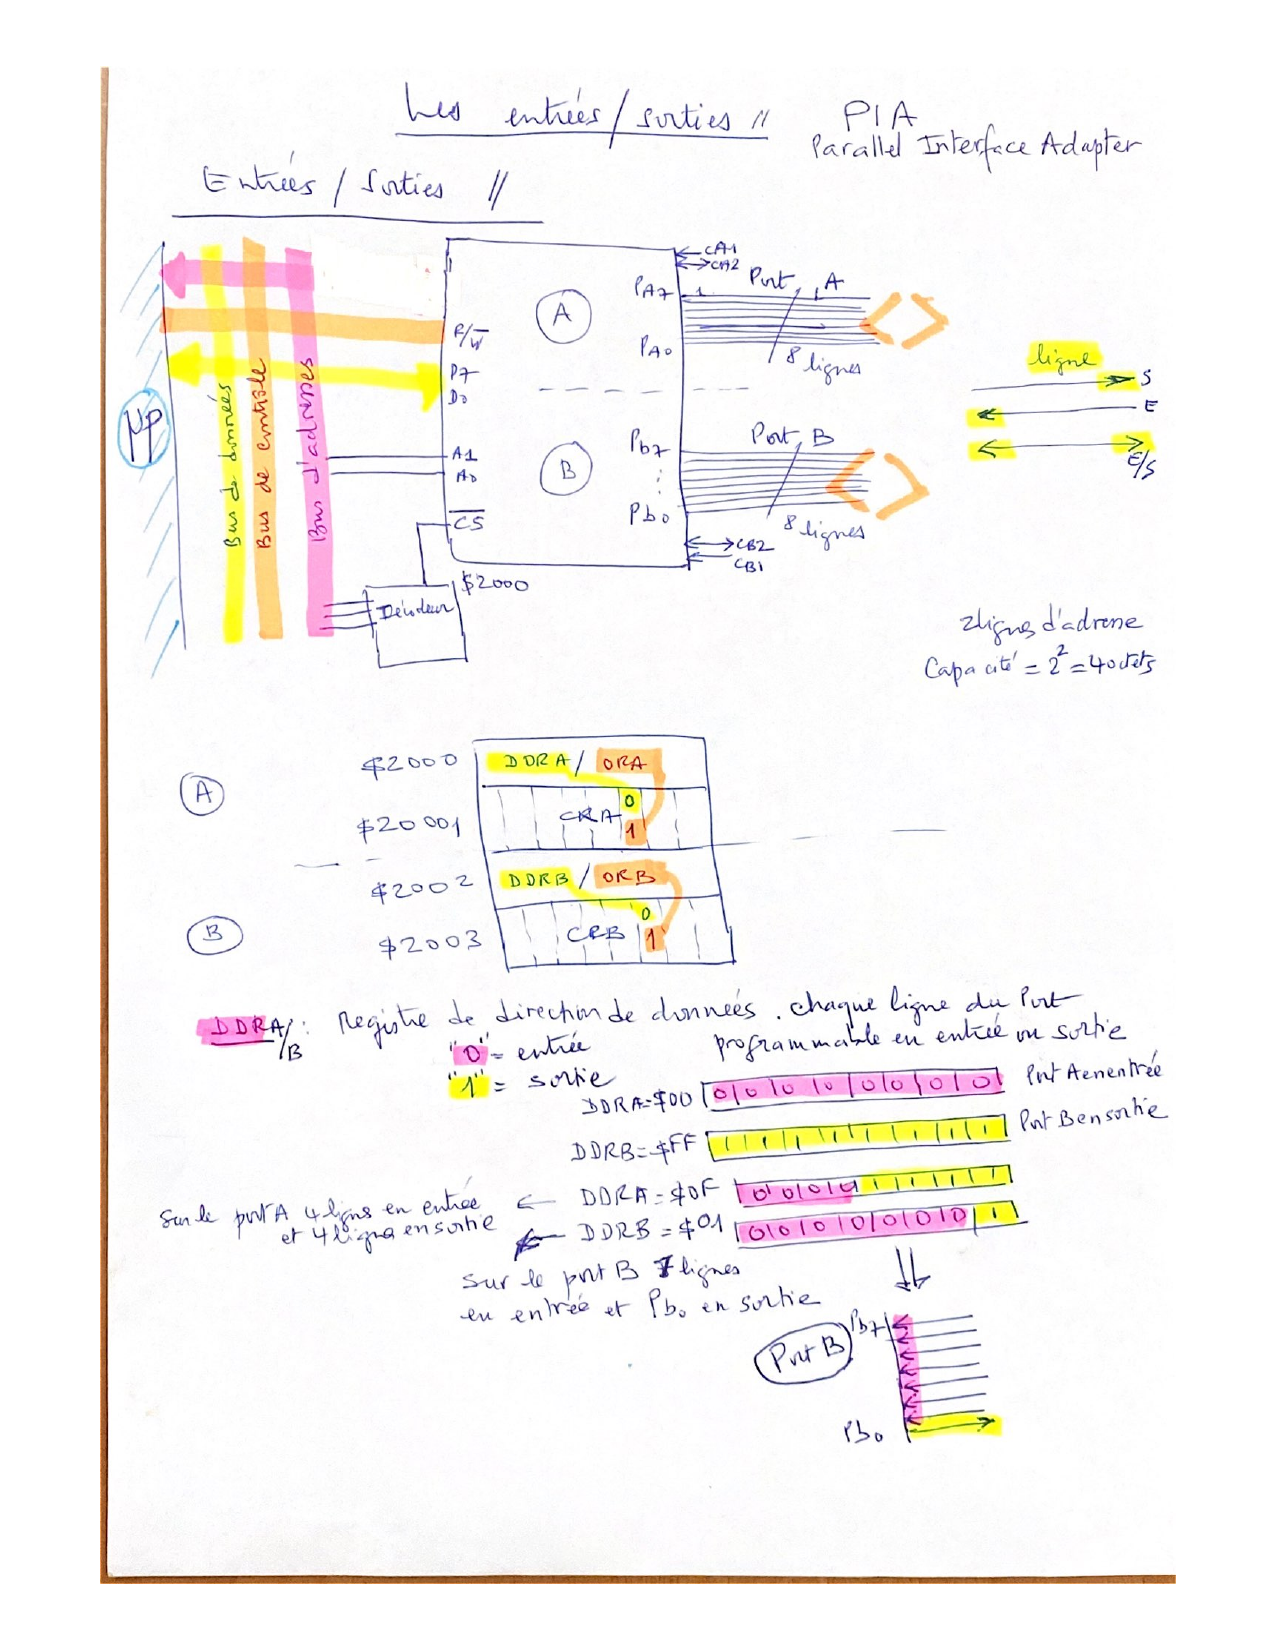 Les entrées/sorties //
PIA
Parallel Interface Adapter
Entrées / Sorties //
CA1
CA2
PA7
1
Port A
A
R/W̅
PA0
8 lignes
ligne
S
D7
D0
E
E/S
µP
Bus de données
Bus de contrôle
Bus d'adresses
Pb7
Port B
A1
A0
B
C̅S̅
Pb0
8 lignes
CB2
CB1
$2000
Décodeur
2 lignes d'adresse
Capacité = 2² = 4 octets
A
$2000
DDRA / ORA
0
$20001
CRA
1
$2002
DDRB / ORB
0
B
$2003
CRB
1
DDRA/B : Registre de direction de données. chaque ligne du Port
programmable en entrée ou sortie
"0" = entrée
"1" = sortie
DDRA=$00 0 0 0 0 0 0 0 0 Port A en entrée
DDRB=$FF 1 1 1 1 1 1 1 1 Port B en sortie
Sur le port A 4 ligns en entrée
et 4 lignes en sortie
← DDRA=$0F 0 0 0 0 1 1 1 1
← DDRB=$01 0 0 0 0 0 0 0 1
Sur le port B 7 lignes
en entrée et Pb0 en sortie
Port B
Pb7
Pb0